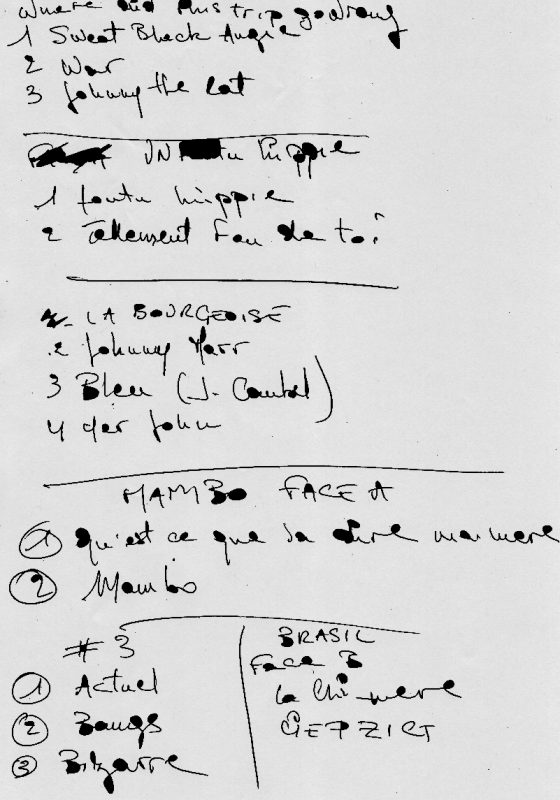 where did this trip go wrong
1 Sweet Black Angie
2 War
3 Johnny the Cat
UN hippie
1 foutu hippie
2 Tellement Fou de toi
LA BOURGEOISE
2 Johnny
3 Bleu (J.
4 der John
MAMBO FACE A
1 qu'est ce que va dire ma mere
2 Mambo
# 3
1 Actuel
2 Bangs
3 Bizarre
BRASIL
Face B
la